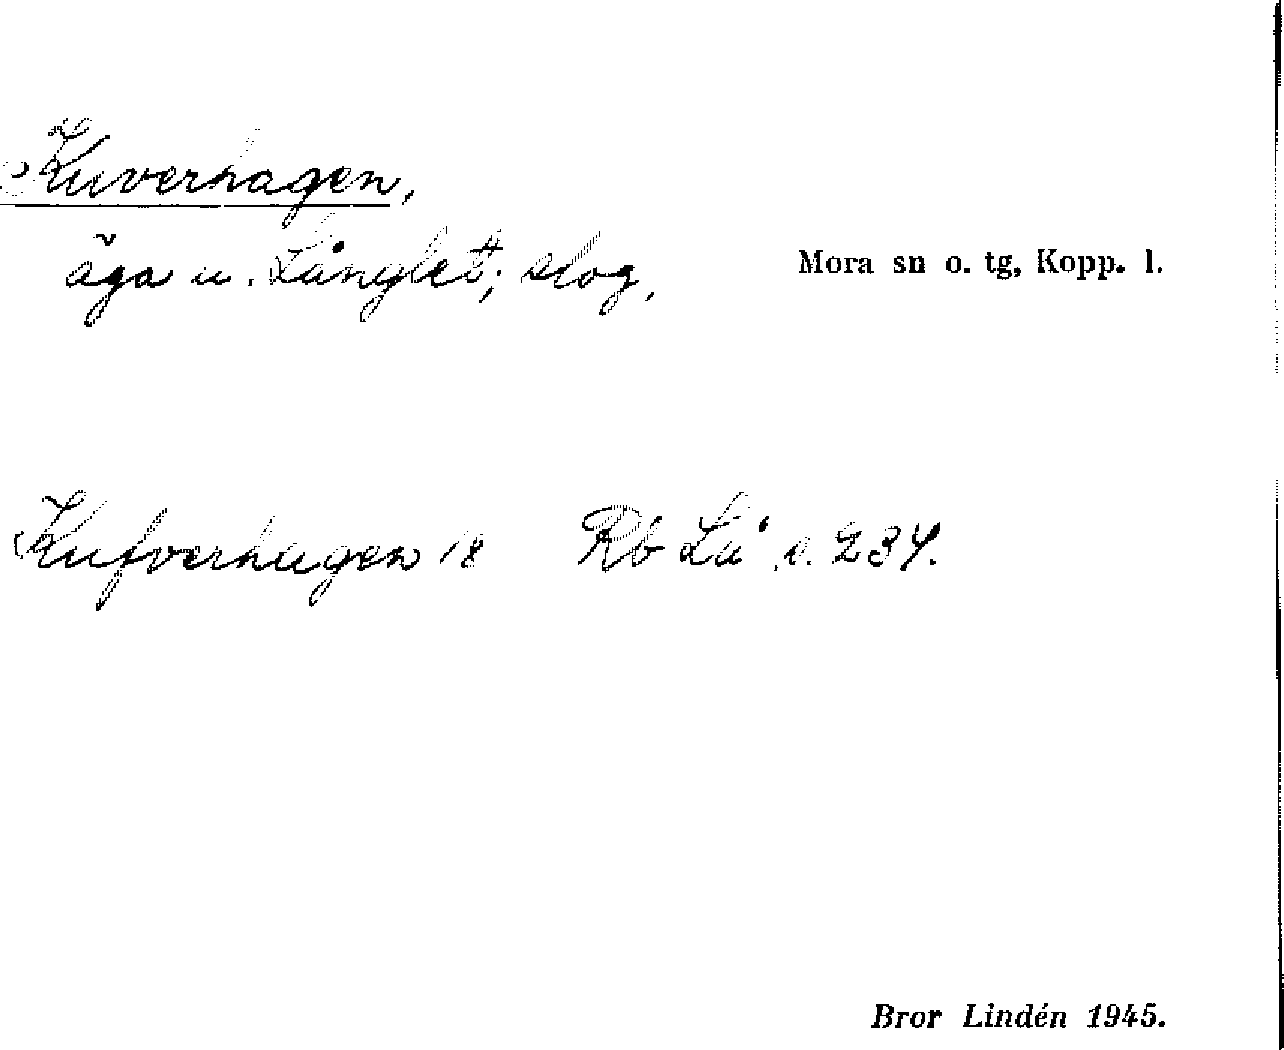 Kuverhagen,
äga u. Långlet; skog,
Mora sn o. tg, Kopp. l.
Kufverhagen 18 Rb Lå s. 234.
Bror Lindén 1945.